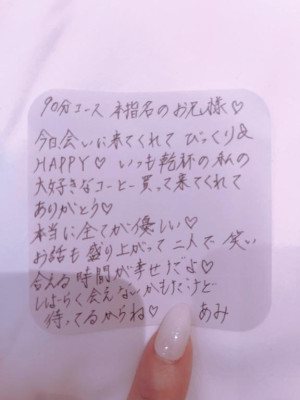 90分コース 本指名のお兄様♡
今日会いに来てくれて びっくり&
HAPPY♡ いつも乾杯の私の
大好きなコーヒー買って来てくれて
ありがとう♡
本当に全てが優しい♡
お話も盛り上がって二人で笑い
合える時間が幸せだよ♡
しばらく会えないかもだけど
待ってるからね♡ あみ